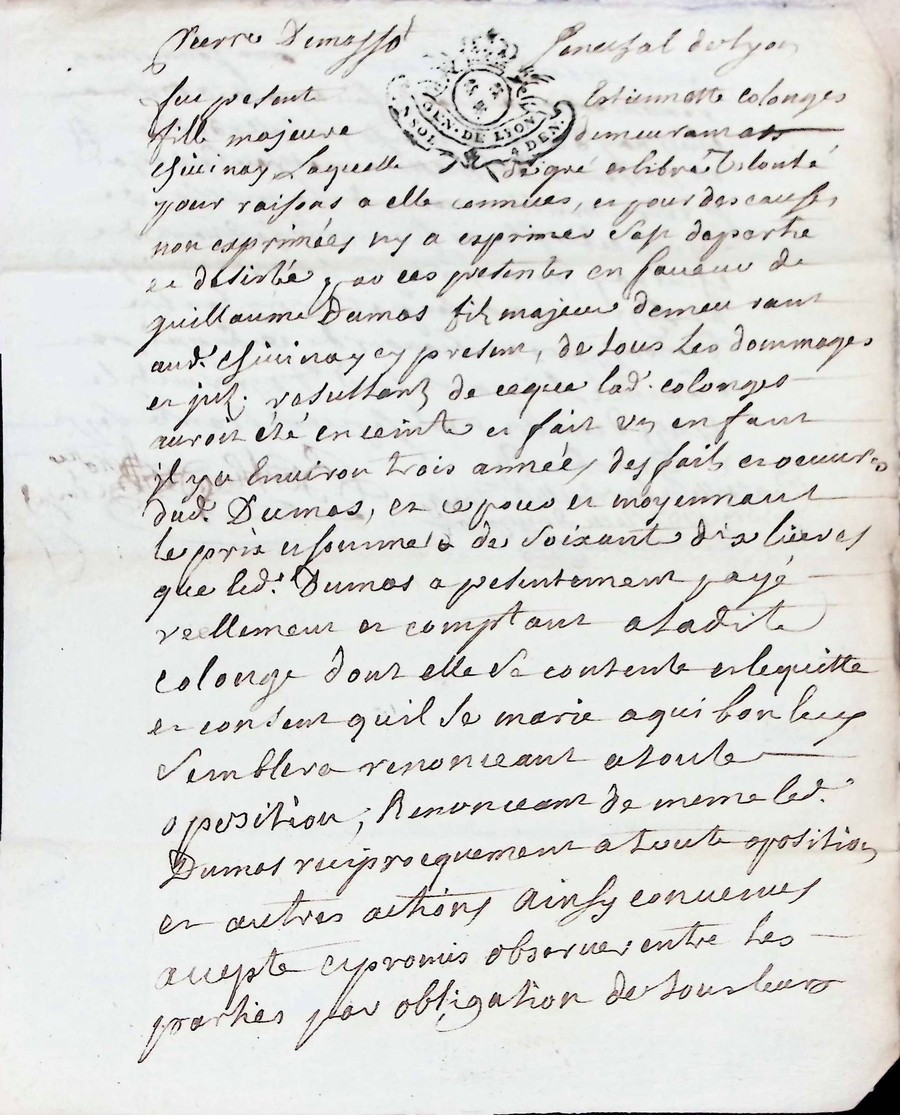 Pierre Dumas
Senechal de Lyon
GEN. DE LYON
1 SOL 4 DEN.
fut present Estiennette colonges
fille majeure demeurant a
Chivinay Laquelle de gré et libre volonté
pour raisons a elle connues, et pour des causes
non exprimées ny a exprimer s'est departie
et desistée par ces presentes en faveur de
guillaume Dumas fils majeur demeurant
aud. Chivinay cy present, de tous les dommages
et jnt. resultant de ceque lad. colonges
auroit été enceinte et fait un enfant
il y a Environ trois années des faits et oeuvres
dud. Dumas, et ce pour et moyennant
le prix et somme de soixant dix livres
que led. Dumas a presentement payé
reellement et comptant a ladite
colonge dont elle se contente et lequitte
et consent quil se marie a qui bon luy
semblera renonceant a toute
oposition, Renonceant de meme led.
Dumas reciprocquement a toute oposition
et autres actions Ainsy convenues
accepté et promis observer entre les
parties par obligation de tous leurs